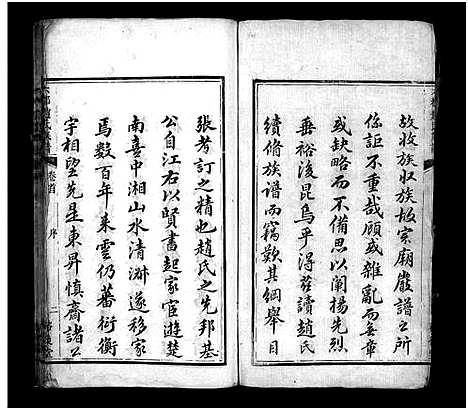 故收族收族故宗廟嚴譜之所
係詎不重哉顧或雜亂而無章
或缺略而不備思以闡揚先烈
垂裕後昆烏乎得茲讀趙氏
續脩族譜而竊歎其綱舉目
張考訂之精也趙氏之先邦基
公自江右以賢書起家宦遊楚
南喜中湘山水清淑遂移家
焉數百年來雲仍蕃衍衡
宇相望先是東昇慎齋諸公
卷首
序
二